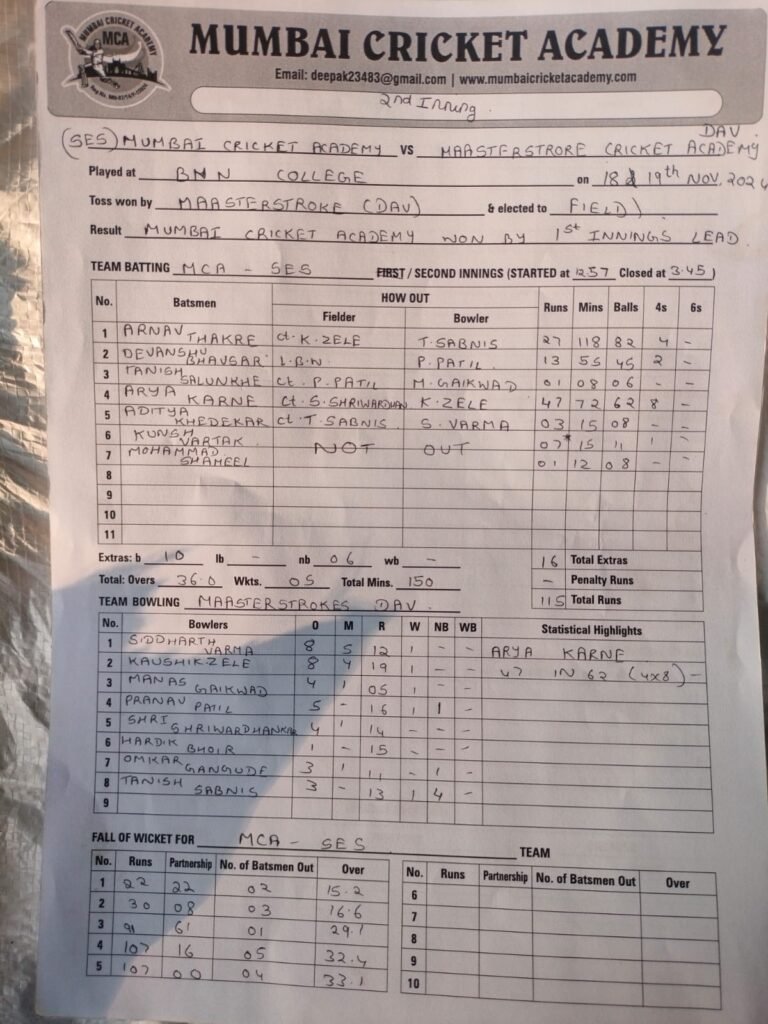 MUMBAI CRICKET ACADEMY
MCA
MUMBAI CRICKET ACADEMY
Email: deepak23483@gmail.com | www.mumbaicricketacademy.com
2nd Inning.
(SES) MUMBAI CRICKET ACADEMY vs MAASTERSTRORE CRICKET ACADEMY DAV.
Played at BNN COLLEGE on 18 & 19th NOV, 2024
Toss won by MAASTERSTROKE (DAV) & elected to FIELD)
Result MUMBAI CRICKET ACADEMY WON BY 1st INNINGS LEAD.
TEAM BATTING MCA - SES FIRST / SECOND INNINGS (STARTED at 1257 Closed at 3.45)
No. Batsmen HOW OUT Runs Mins Balls 4s 6s
Fielder Bowler
1 ARNAV THAKRE ct. K. ZELE T. SABNIS 27 118 82 4 -
2 DEVANSHU BHAVSAR L.B.W P. PATIL. 13 55 45 2 -
3 TANISH SALUNKHE ct. P. PATIL M. GAIKWAD 01 08 06 - -
4 ARYA KARNE ct. S. SHRIWARDHAN K. ZELE 47 72 62 8 -
5 ADITYA KHEDEKAR ct. T. SABNIS S. VARMA 03 15 08 - -
6 KUNSH VARTAK. NOT OUT 07* 15 11 1 -
7 MOHAMMAD SHAHEEL 01 12 08 - -
8
9
10
11
Extras: b 10 lb - nb 06 wb - 16 Total Extras
Total: Overs 36.0 Wkts. 05 Total Mins. 150 - Penalty Runs
115 Total Runs
TEAM BOWLING MAASTERSTROKES DAV.
No. Bowlers O M R W NB WB Statistical Highlights
1 SIDDHARTH VARMA 8 5 12 1 - - ARYA KARNE
2 KAUSHIK ZELE 8 4 19 1 - - 47 IN 62 (4x8) -
3 MANAS GAIKWAD 4 1 05 1 - -
4 PRANAV PATIL 5 - 16 1 1 -
5 SHRI SHRIWARDHANKAR 4 1 14 - - -
6 HARDIK BHOIR 1 - 15 - - -
7 OMKAR GANGUDE 3 1 11 - 1 -
8 TANISH SABNIS 3 - 13 1 4 -
9
FALL OF WICKET FOR MCA - SES TEAM
No. Runs Partnership No. of Batsmen Out Over No. Runs Partnership No. of Batsmen Out Over
1 22 22 02 15.2 6
2 30 08 03 16.6 7
3 91 61 01 29.1 8
4 107 16 05 32.4 9
5 107 00 04 33.1 10